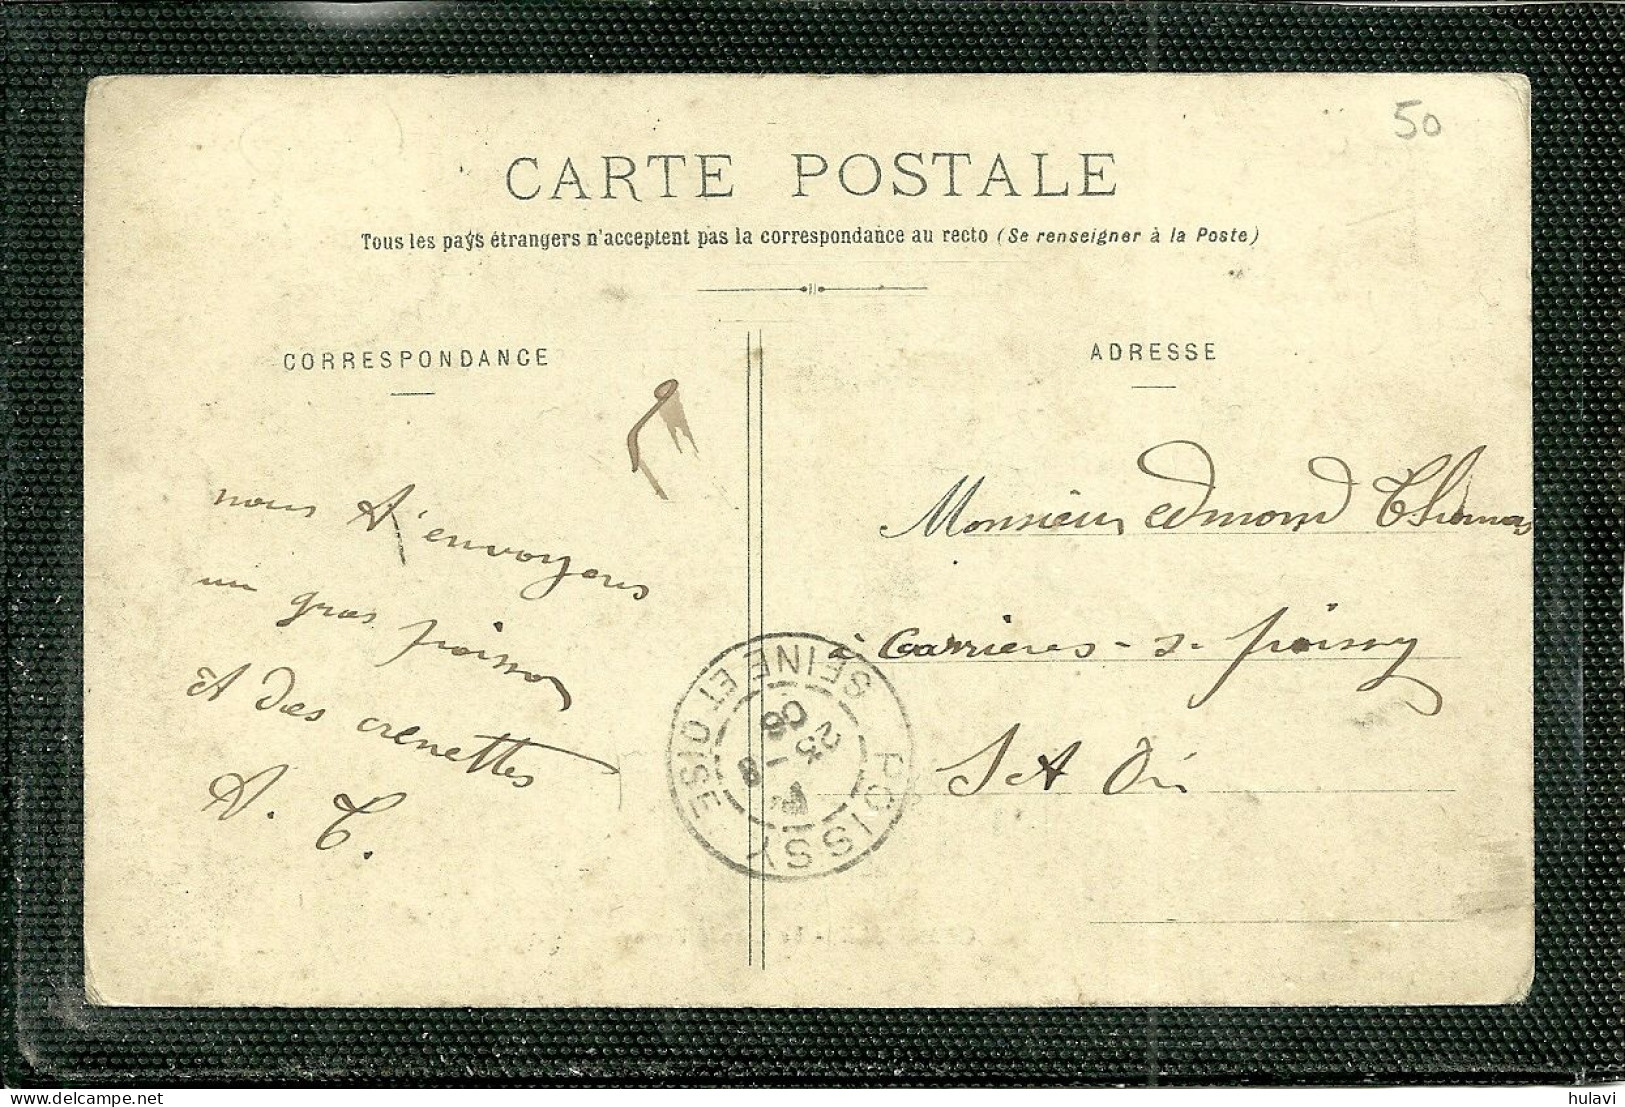 50
CARTE POSTALE
Tous les pays étrangers n'acceptent pas la correspondance au recto (Se renseigner à la Poste)
CORRESPONDANCE
nous t'envoyons
un gros poisson
et des crevettes
A. T.
ADRESSE
Monsieur Edmond Thomas
à Carrières-s-poissy
S et Oi
POISSY
SEINE ET OISE
23 - 8
08
hulavi